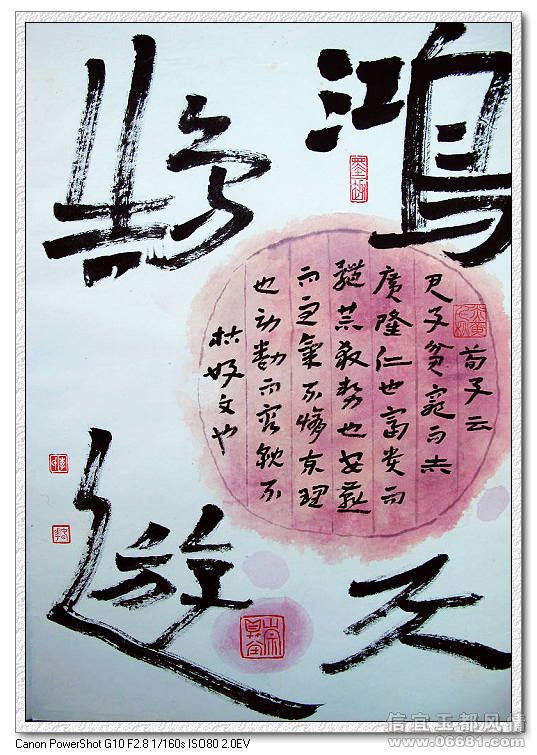 鴻
鵠
天
遊
荀子云
君子贫窮而志
廣隆仁也富贵而
恭殺势也安燕
而血氣不惰柬理
也劳勌而容貌不
枯好文也
Canon PowerShot G10 F2.8 1/160s ISO80 2.0EV
信宜玉都风情
www.06681.com